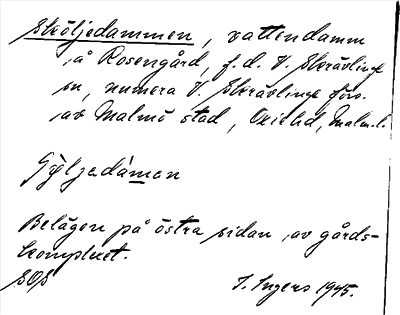 Sköljedammen, vattendamm
å Rosengård, f.d. V. Skrävlinge
sn, numera V. Skrävlinge förs.
av Malmö stad, Oxie hd, Malm. l.
Sɸljedámen
Belägen på östra sidan av gårds-
komplexet.
SOS I. Ingers 1945.